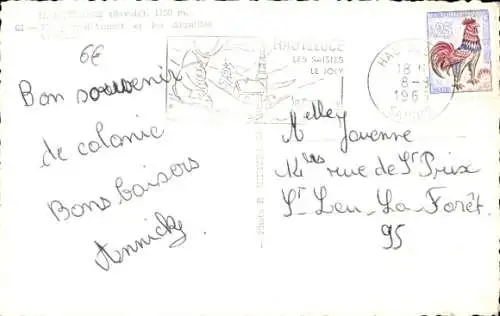 (Savoie), 1150 m.
et les Aiguilles
6€
Bon souvenir
de colonie
Bons baisers
Annick
HAUTELUCE
LES SAISIES
LE JOLY
18
196
0,25
Melley Javenne
rue de St Prix
St. Leu-La-Forêt
95